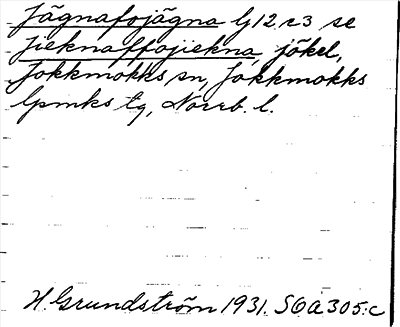 Jägnafojägna Gj12 c3 se
Jieknaffojiekna, jökel,
Jokkmokks sn, Jokkmokks
lpmks tg, Norrb. l.
H. Grundström 1931. SOA 305:c